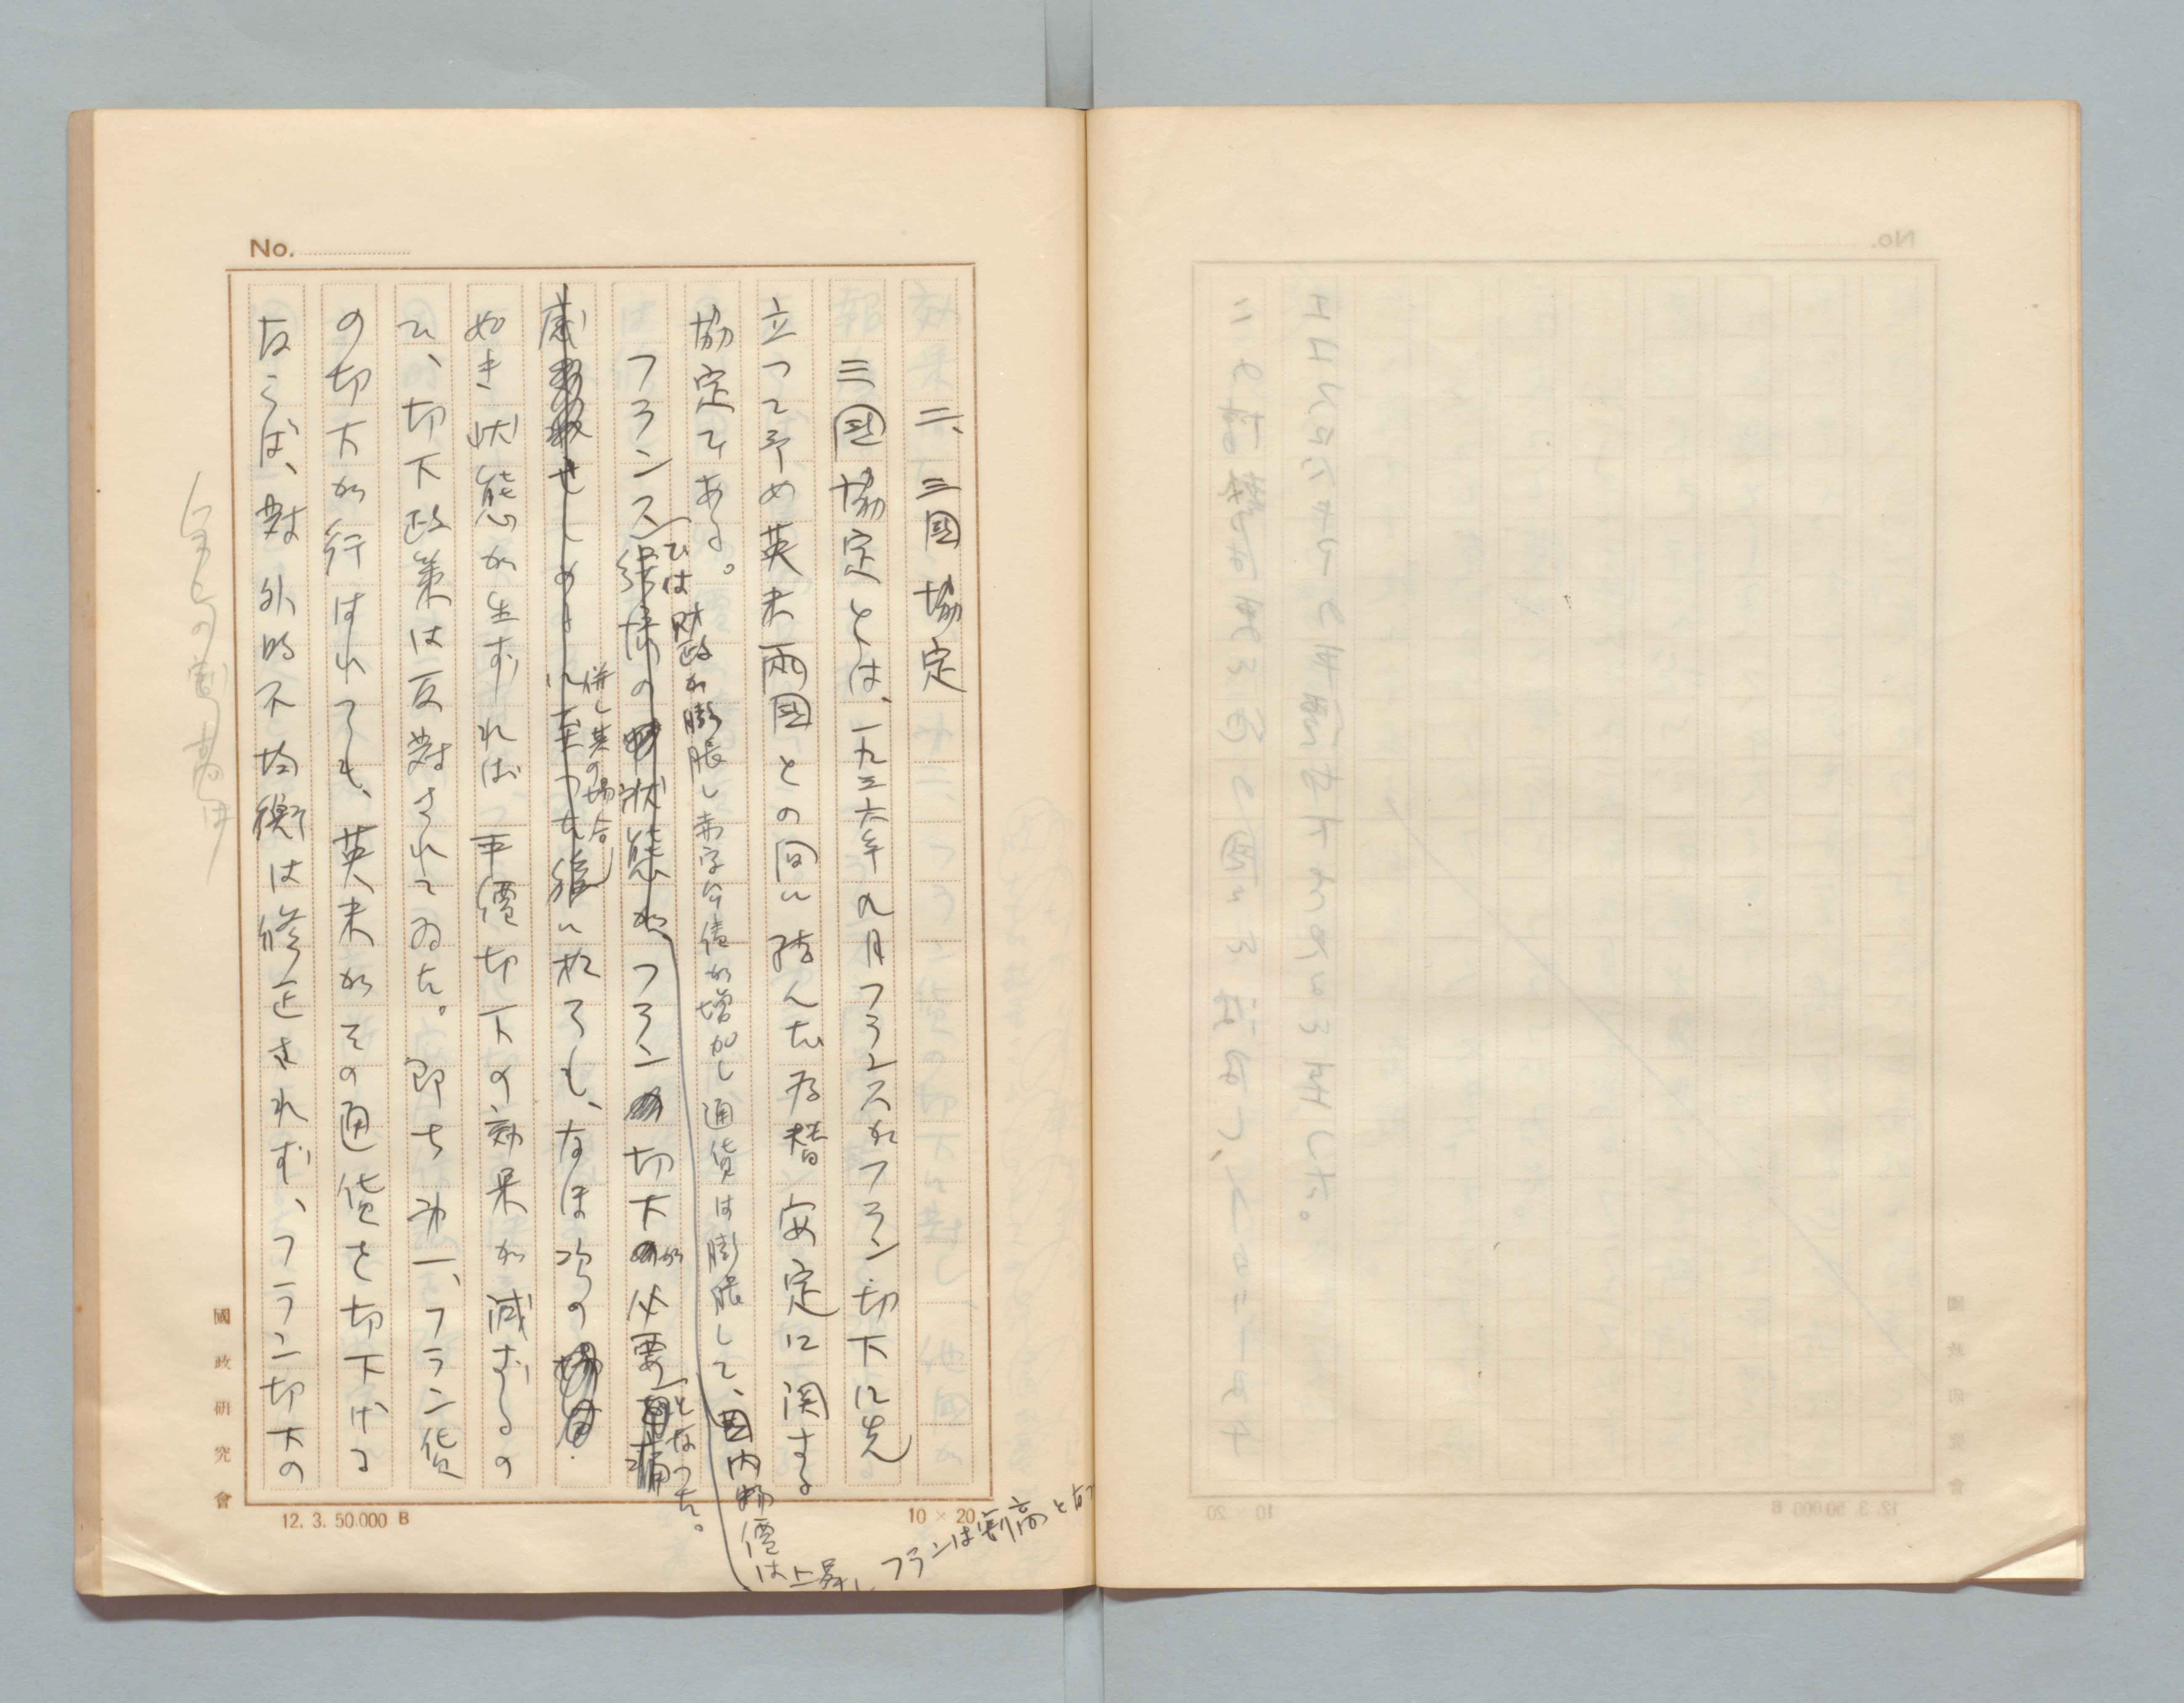 No.
二、三国協定
三国協定とは、一九三六年九月フランスがフラン切下に先
立つて予め英米両国との間に結んだ為替安定に関する
協定である。
では財政が膨脹し赤字公債が増加し通貨は膨脹して、国内物價は上昇し フランは割高とな
フランス経済の状態が フラン切下が必要
となつた。
併し其の場合
せしめるに至つた後に於ても、なほ次の
如き状態が生ずれば 平價切下の効果が減ずるの
で、切下政策は反対されてゐた。即ち 第一、フラン貨
の切下が行はれても、英米がその通貨を切下げる
ならば、対外的不均衡は修正されず、フラン切下の
國政研究會
12. 3. 50.000 B
10 × 20